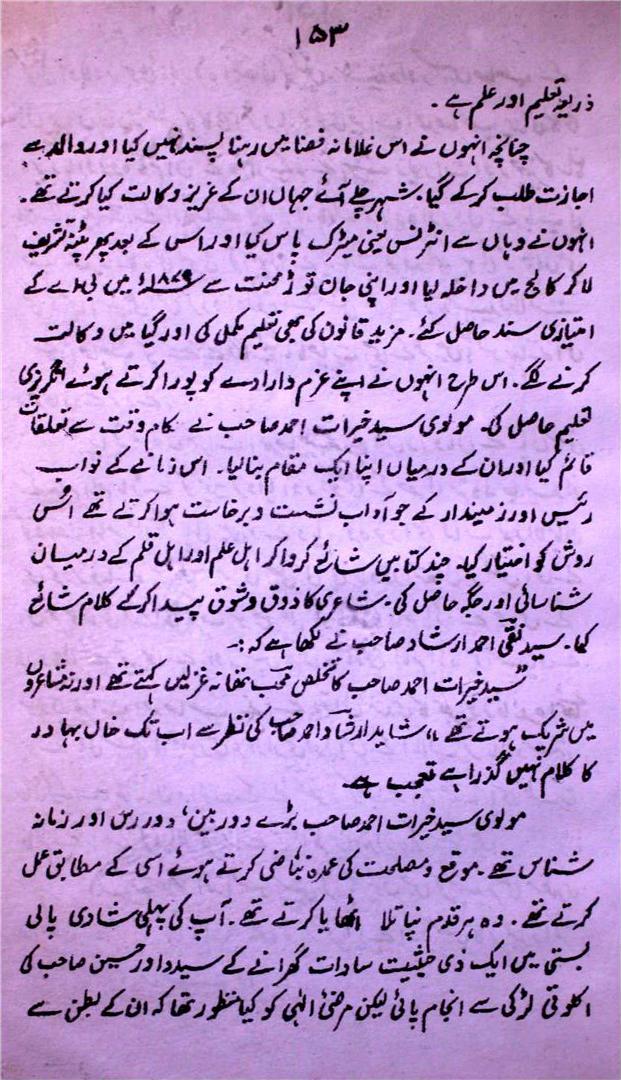 ۱۵۳
ذریعہ تعلیم اور علم ہے۔
چنانچہ انہوں نے اس غلامانہ فضا میں رہنا پسند نہیں کیا اور والد سے
اجازت طلب کر کے گیا۔ شہر چلے آئے جہاں ان کے عزیز وکالت کیا کرتے تھے۔
انہوں نے وہاں سے انٹرنس یعنی میٹرک پاس کیا اور اس کے بعد پھر پٹنہ تشریف
لا کر کالج میں داخلہ لیا اور اپنی جان توڑ محنت سے ۱۸۷۹ء میں بی۔اے کے
امتیازی سند حاصل کئے۔ مزید قانون کی بھی تعلیم مکمل کی اور گیا میں وکالت
کرنے لگے۔ اس طرح انہوں نے اپنے عزم و ارادے کو پورا کرتے ہوئے انگریزی
تعلیم حاصل کی۔ مولوی سید خیرات احمد صاحب نے حکام وقت سے تعلقات
قائم کیا اور ان کے درمیاں اپنا ایک مقام بنا لیا۔ اس زمانے کے نواب
رئیس اور زمیندار کے جو آداب نشست و برخاست ہوا کرتے تھے اُس
روش کو اختیار کیا۔ چند کتابیں شائع کروا کر اہل علم اور اہل قلم کے درمیان
شناسائی اور جگہ حاصل کی۔ شاعری کا ذوق و شوق پیدا کر کے کلام شائع
کیا۔ سید نقی احمد ارشاد صاحب نے لکھا ہے کہ :۔
"سید خیرات احمد صاحب کا تخلص محب تھا نہ غزلیں کہتے تھے اور نہ مشاعروں
میں شریک ہوتے تھے" شاید ارشاد احمد صاحب کی نظر سے اب تک خاں بہادر
کا کلام نہیں گذرا ہے تعجب ہے۔
مولوی سید خیرات احمد صاحب بڑے دور بین، دور رس اور زمانہ
شناس تھے۔ موقع و مصلحت کی عمدہ نباضی کرتے ہوئے اسی کے مطابق عمل
کرتے تھے۔ وہ ہر قدم نپا تلا اٹھایا کرتے تھے۔ آپ کی پہلی شادی پالی
بستی میں ایک ذی حیثیت سادات گھرانے کے سید داور حسین صاحب کی
اکلوتی لڑکی سے انجام پائی لیکن مرضیٔ الٰہی کو کیا منظور تھا کہ ان کے بطن سے